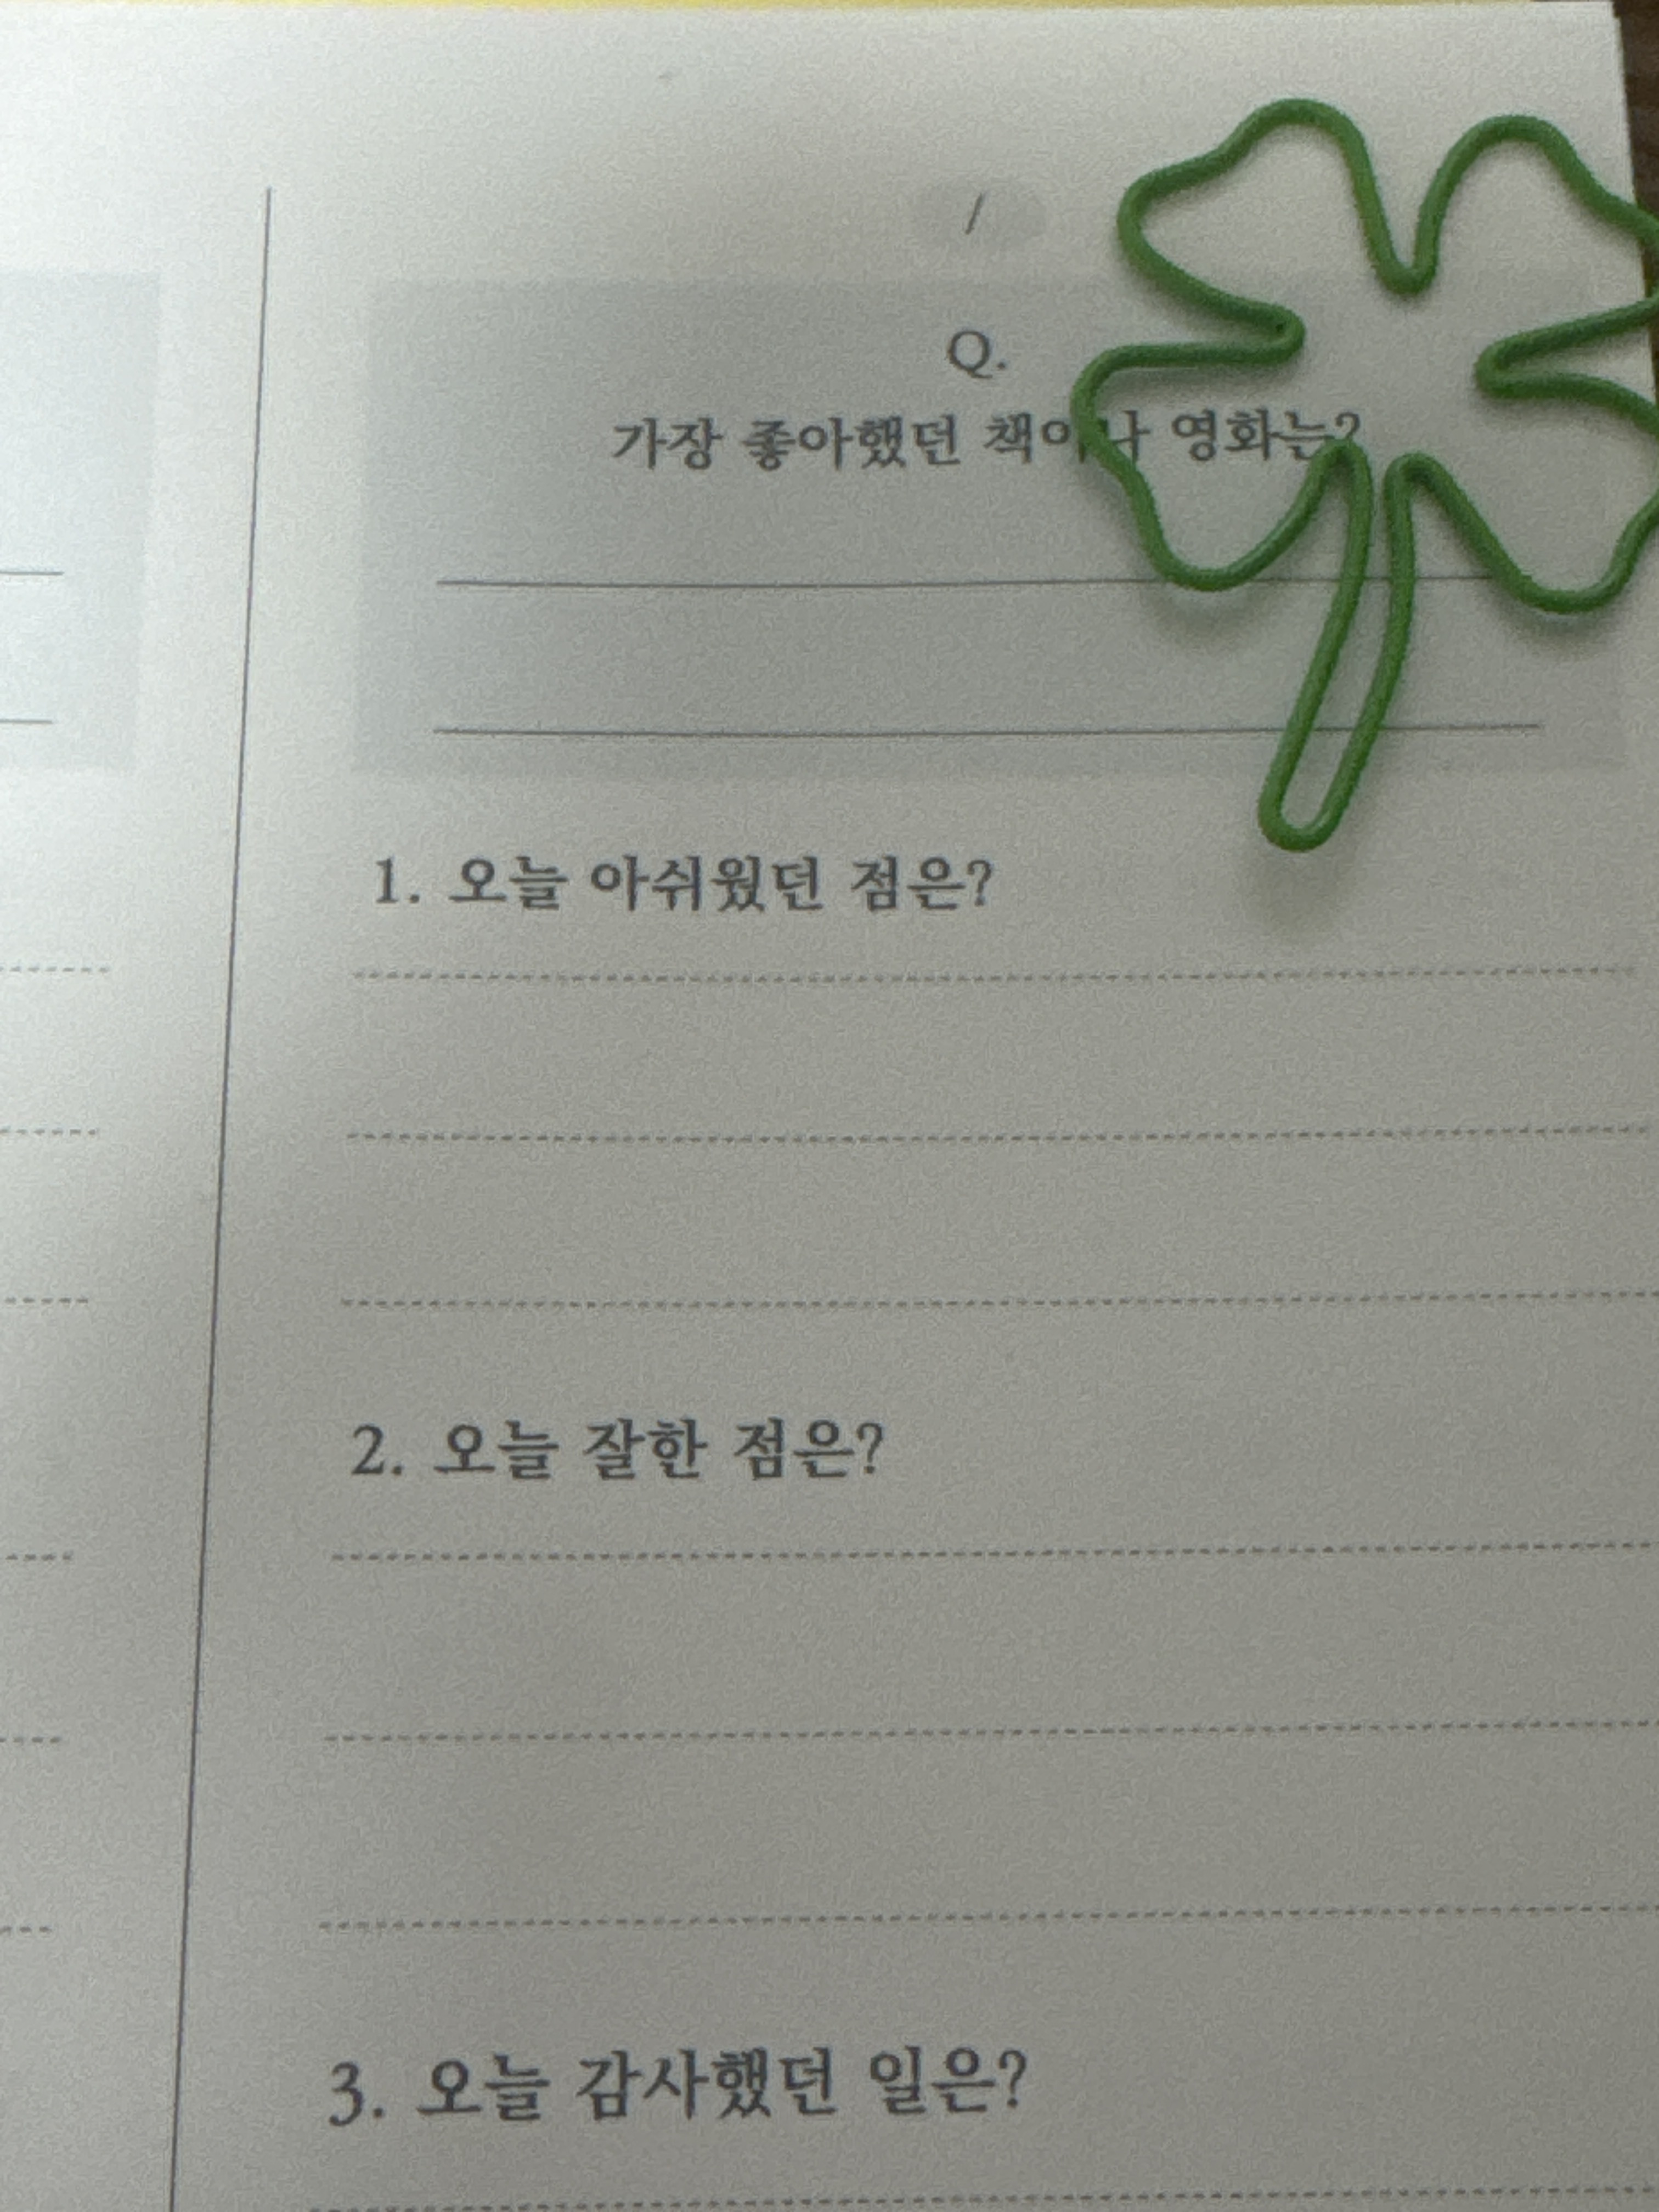 /
Q.
가장 좋아했던 책이나 영화는?
1. 오늘 아쉬웠던 점은?
2. 오늘 잘한 점은?
3. 오늘 감사했던 일은?